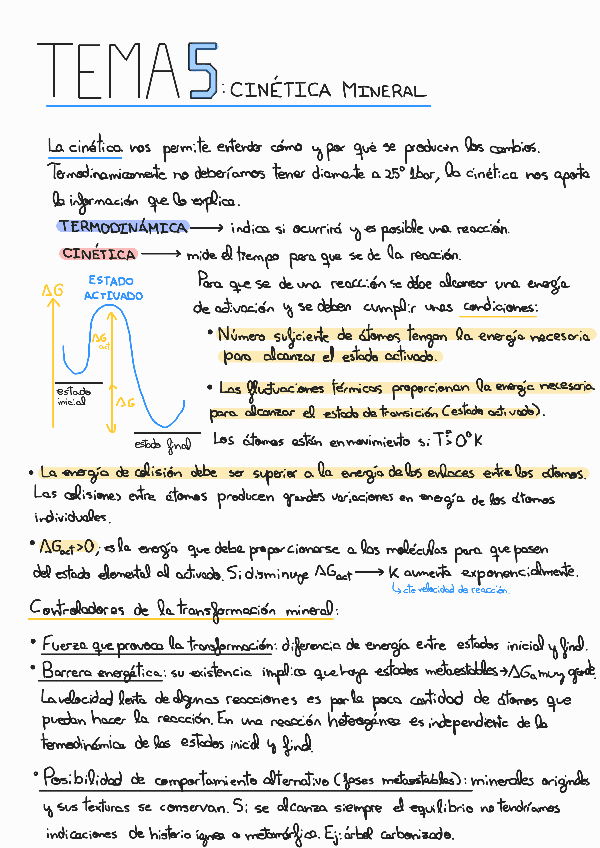 TEMA 5: CINÉTICA MINERAL
La cinética nos permite entender cómo y por qué se producen los cambios.
Termodinamicamente no deberíamos tener diamante a 25° 1bar, la cinética nos aporta
la información que lo explica.
TERMODINÁMICA → indica si ocurrirá y es posible una reacción.
CINÉTICA → mide el tiempo para que se de la reacción.
Para que se de una reacción se debe alcanzar una energía
de activación y se deben cumplir unas condiciones:
ΔG
ESTADO
ACTIVADO
ΔG act
estado
inicial
ΔG
estado final
• Número suficiente de átomos tengan la energía necesaria
para alcanzar el estado activado.
• Las fluctuaciones térmicas proporcionan la energía necesaria
para alcanzar el estado de transición (estado activado).
Los átomos están en movimiento si T>0°K
• La energía de colisión debe ser superior a la energía de los enlaces entre los átomos.
Las colisiones entre átomos producen grandes variaciones en energía de los átomos
individuales.
• ΔGact>0, es la energía que debe proporcionarse a las moléculas para que pasen
del estado elemental al activado. Si disminuye ΔGact → K aumenta exponencialmente.
↳ cte velocidad de reacción.
Controladores de la transformación mineral:
• Fuerza que provoca la transformación: diferencia de energía entre estados inicial y final.
• Barrera energética: su existencia implica que haya estados metaestables → ΔGa muy grande.
La velocidad lenta de algunas reacciones es por la poca cantidad de átomos que
puedan hacer la reacción. En una reacción heterogénea es independiente de la
termodinámica de los estados inicial y final.
• Posibilidad de comportamiento alternativo (fases metaestables): minerales originales
y sus texturas se conservan. Si se alcanza siempre el equilibrio no tendríamos
indicaciones de historia ígnea o metamórfica. Ej: árbol carbonizado.